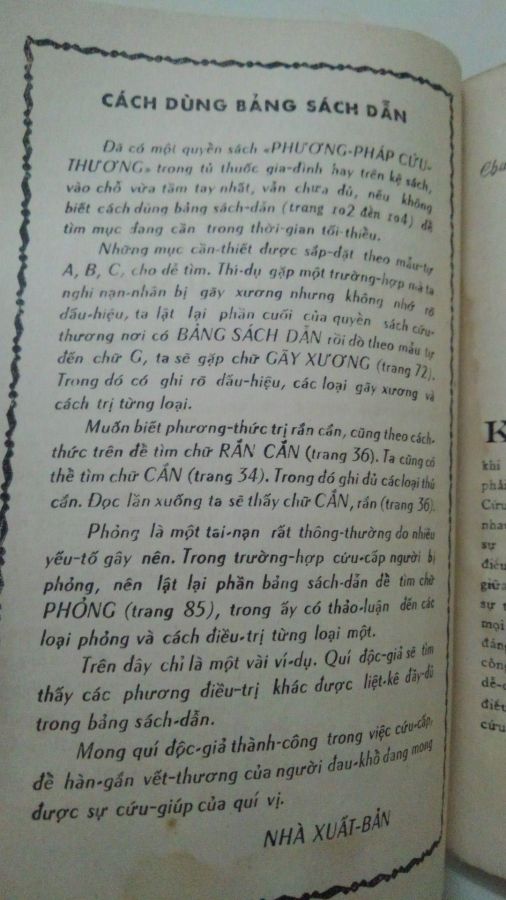 CÁCH DÙNG BẢNG SÁCH DẪN
Đã có một quyền sách «PHƯƠNG-PHÁP CỨU-
THƯƠNG» trong tủ thuốc gia-đình hay trên kệ sách,
vào chỗ vừa tầm tay nhất, vẫn chưa đủ, nếu không
biết cách dùng bảng sách-dẫn (trang 102 đến 104) để
tìm mục đang cần trong thời-gian tối-thiều.
Những mục cần-thiết được sắp-đặt theo mẫu-tự
A, B, C, cho dễ tìm. Thí-dụ gặp một trường-hợp mà ta
nghi nạn-nhân bị gãy xương nhưng không nhớ rõ
dấu-hiệu, ta lật lại phần cuối của quyền sách cứu-
thương nơi có BẢNG SÁCH DẪN rồi dò theo mẫu tự
đến chữ G, ta sẽ gặp chữ GÃY XƯƠNG (trang 72).
Trong đó có ghi rõ dấu-hiệu, các loại gãy xương và
cách trị từng loại.
Muốn biết phương-thức trị rắn cắn, cũng theo cách-
thức trên để tìm chữ RẮN CẮN (trang 36). Ta cũng có
thể tìm chữ CẮN (trang 34). Trong đó ghi đủ các loại thú
cắn. Đọc lần xuống ta sẽ thấy chữ CẮN, rắn (trang 36).
Phỏng là một tai-nạn rất thông-thường do nhiều
yếu-tố gây nên. Trong trường-hợp cứu-cấp người bị
phỏng, nên lật lại phần bảng sách-dẫn để tìm chữ
PHỎNG (trang 85), trong ấy có thảo-luận đến các
loại phỏng và cách điều-trị từng loại một.
Trên đây chỉ là một vài ví-dụ. Quí độc-giả sẽ tìm
thấy các phương điều-trị khác được liệt-kê đầy-đủ
trong bảng sách-dẫn.
Mong quí độc-giả thành-công trong việc cứu-cấp,
để hàn-gắn vết-thương của người đau-khổ đang mong
được sự cứu-giúp của quí vị.
NHÀ XUẤT-BẢN
K
khi
phải
Cứu
nhau
sự
điều
giữa
sự t
mọi
đáng
công
dễ-d
điều
cứu